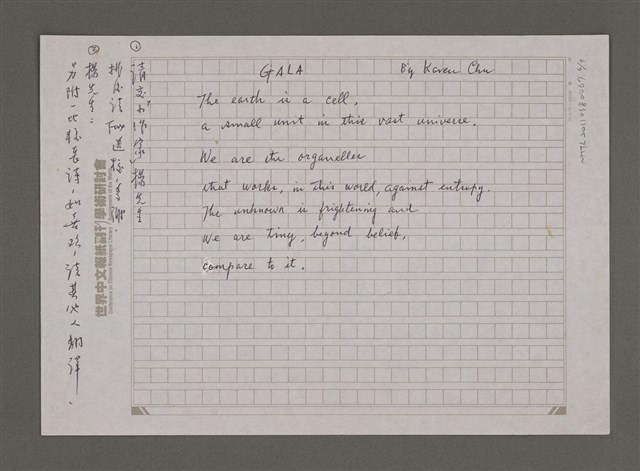 GALA By Karen Chu
The earth is a cell,
a small unit in this vast universe.
We are its organelles
that works, in this world, against entropy.
The unknown is frightening and
We are tiny, beyond belief,
compare to it.
①
楊先生
Fax
世界中文報紙副刊學術研討會
②
楊先生：
另附一比較長詩，如喜歡，請其他人翻譯。